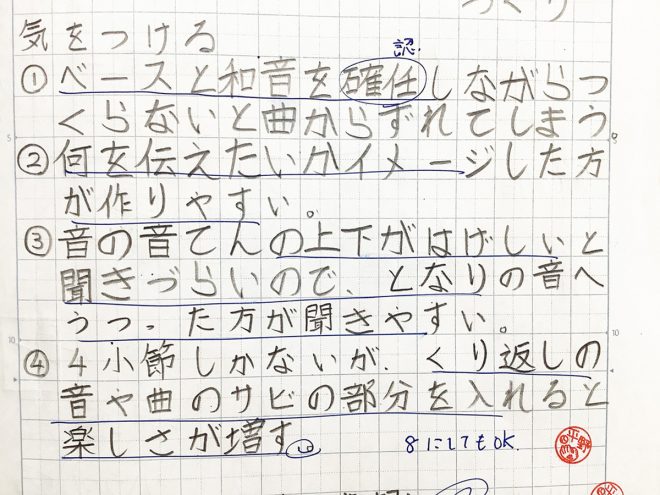 づくり
気をつける
認.
①ベースと和音を確任しながらつ
くらないと曲からずれてしまう。
②何を伝えたいかイメージした方
が作りやすい。
③音の音てんの上下がはげしいと
聞きづらいので、となりの音へ
うつった方が聞きやすい。
④4小節しかないが、くり返しの
音や曲のサビの部分を入れると
楽しさが増す。
8にしてもOK.
平野